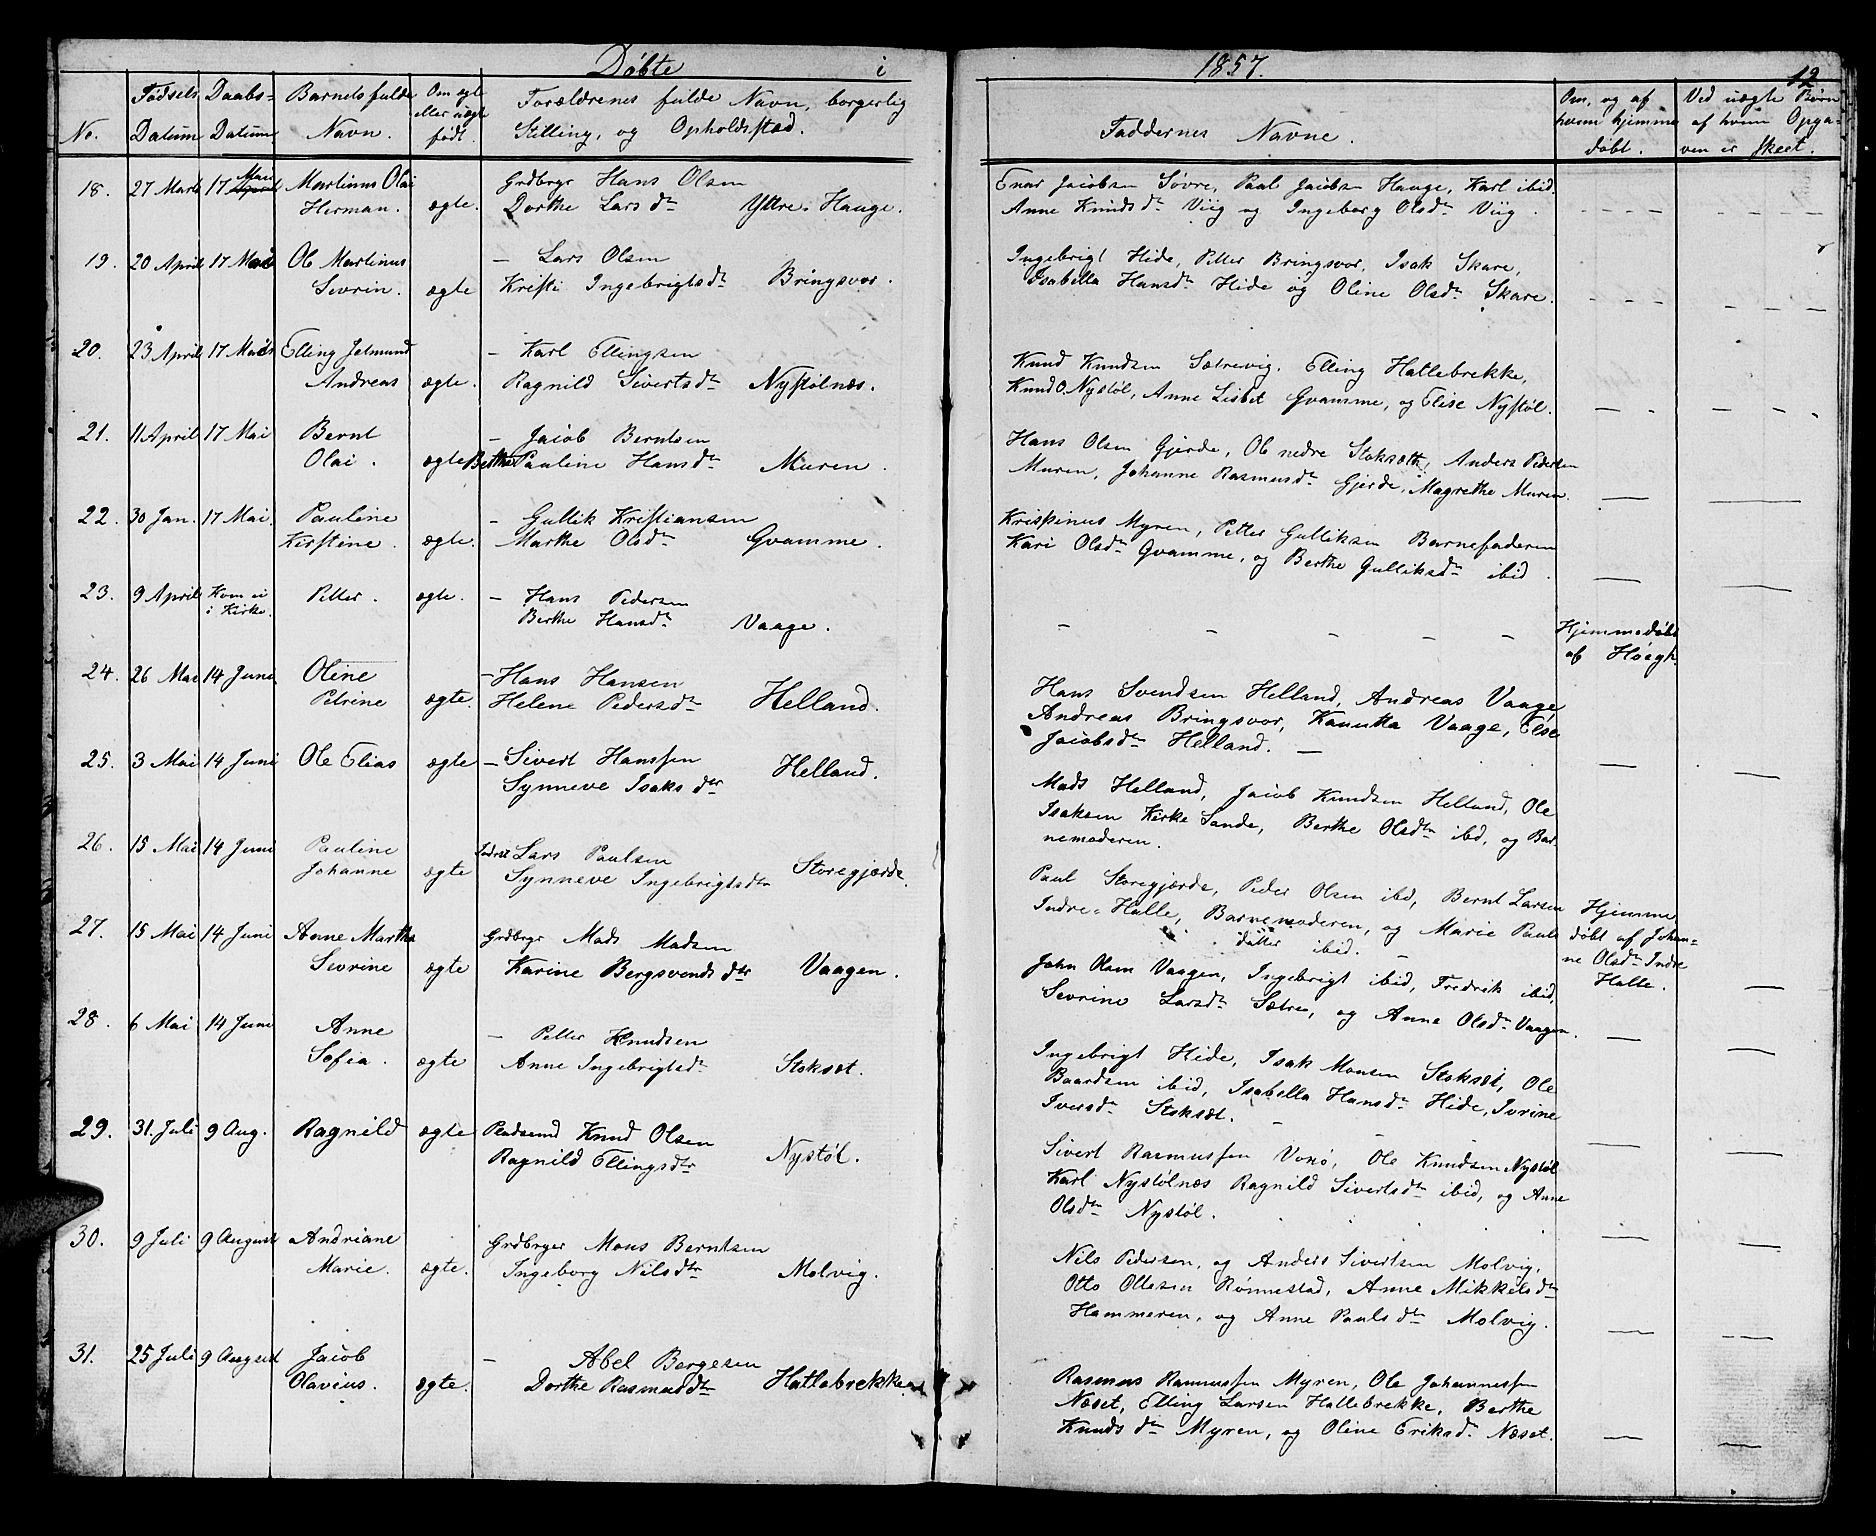 Døbte i 1857. 12
No. Fødsels Datum Daabs- Datum. Barnets fulde Navn. Om ægte eller uægte født. Forældrenes fulde Navn, borgerlig Stilling, og Opholdssted. Faddernes Navne. Om, og af hvem hjemme døbt. Ved uægte Børn af hvem Opga- ven er skeet.
18. 27 Marts 17 April Mai Martinus Olai Grdbrgr Hans Olsen
Herman. ægte. Dorthe Larsdtr Yttre-Hauge.
Enar Jacobsen Søvre, Paul Jacobsen Hauge, Karl ibid.
Anne Knudsdtr Viig og Ingeborg Olsdtr Viig.
19. 20 April 17 Mai Ole Martinus — Lars Olsen
Sevrin. ægte Kristi Ingebrigtsdtr Bringsvor.
Ingebrigt Hide, Petter Bringsvor, Isak Skare,
Isabella Hansdtr Hide og Oline Olsdtr Skare.
20. 23 April 17 Mai Elling Jetmund — Karl Ellingsen
Andreas ægte. Ragnild Sivertsdtr Nystølnæs.
Knud Knudsen Sætrevig. Elling Hatlebrekke,
Knud O. Nystøl, Anne Lisbet Gvamme, og Elise Nystøl.
21. 11 April 17 Mai Bernt — Jacob Berntsen
Olai. ægte Berthe Pauline Hansdtr Muren.
Hans Olsen Gjerde, Ole nedre Stoksæth, Anders Pedersen
Muren, Johanne Rasmusdtr Gjerde, Magrethe Muren.
22. 30 Jan. 17 Mai. Pauline — Gullik Kristiansen
Kirstine. ægte. Marthe Olsdtr Gvamme.
Krispinus Myren, Petter Gulliksen Barnefaderen
Kari Olsdtr Gvamme, og Berthe Gulliksdtr ibid.
23. 9 April Kom ei i Kirke. Petter. ægte. — Hans Pedersen
Berthe Hansdtr Vaage.
Hjemmedøbt
af Høegh.
24. 26 Mai 14 Juni. Oline — Hans Hansen
Petrine ægte. Helene Pedersdtr Helland.
Hans Svendsen Helland, Andreas Vaage
Andreas Bringsvor, Kanutta Vaage, Else
Jacobsdtr Helland. —
25. 3 Mai 14 Juni Ole Elias ægte — Sivert Hanssen
Synneve Isaksdtr Helland.
Mads Helland, Jacob Knudsen Helland, Ole
Isaksen Kirke Sande, Berthe Olsdtr ibd, og Bar-
nemoderen.
26. 15 Mai 14 Juni Pauline Lars Paulsen
Johanne ægte Synneve Ingebrigtsdtr Storegjærde.
Paul Storegjærde, Peder Olsen ibd, Bernt Larsen
Indre-Halle, Barnemoderen, og Marie Pauls
datter ibid. —
Hjemme
døbt af Johan-
ne Olsdtr Indre
Halle.
27. 15 Mai 14 Juni Anne Martha Grdbrgr Mads Madsen
Sevrine ægte Karine Bergsvendsdtr Vaagen.
John Olsen Vaagen, Ingebrigt ibid, Fredrik ibid.
Sevrine Larsdtr Sætre, og Anne Olsdtr Vaagen.
28. 6 Mai 14 Juni Anne — Petter Knudsen
Sofia. ægte Anne Ingebrigtsdtr Stoksæt.
Ingebrigt Hide, Isak Monsen Stoksæt, Ole
Baardsen ibid, Isabella Hansdtr Hide, Ivrine
Iversdtr Stoksæt.
29. 31. Juli 9 Aug. Ragnild ægte Pladsmd Knud Olsen
Ragnild Ellingsdtr Nystøl.
Sivert Rasmussen Voxø, Ole Knudsen Nystøl
Karl Nystølnæs Ragnild Sivertsdtr ibid, og Anne
Olsdtr Nystøl.
30. 9 Juli 9 August Andriane Grdbrger Mons Berntsen
Marie. ægte. Ingeborg Nilsdtr Molvig.
Nils Pedersen, og Anders Sivertsen Molvig,
Otto Ottesen Rønnestad, Anne Mikkelsdtr
Hammeren, og Anne Paulsdtr Molvig.
31. 25 Juli 9 August Jacob — Abel Børgesen
Olavius. ægte. Dorthe Rasmusdtr Hatlebrekke
Rasmus Rasmussen Myren, Ole Johannessen
Næset, Elling Larsen Hallebrekke, Berthe
Knudsdtr Myren, og Oline Eriksdtr Næset.